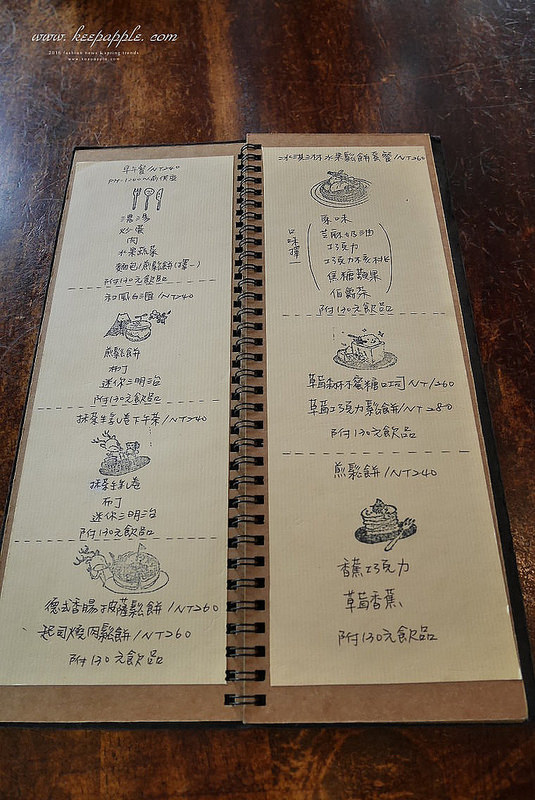 www.keepapple.com
早午餐/NT240
濃湯
炒蛋
肉
水果蔬菜
麵包/煎鬆餅(擇一)
附130元飲品
和風白酒/NT240
煎鬆餅
布丁
迷你三明治
附130元飲品
抹茶生乳卷下午茶/NT240
抹茶生乳卷
布丁
迷你三明治
附130元飲品
德式香腸披薩鬆餅/NT260
起司燒肉鬆餅/NT260
附130元飲品
冰淇淋水果鬆餅套餐/NT260
口味擇一
原味
芝麻奶油
巧克力
巧克力核桃
焦糖蘋果
伯爵茶
附130元飲品
草莓蜂蜜糖吐司NT/260
草莓巧克力鬆餅/NT280
附130元飲品
煎鬆餅/NT240
香蕉巧克力
草莓香蕉
附130元飲品